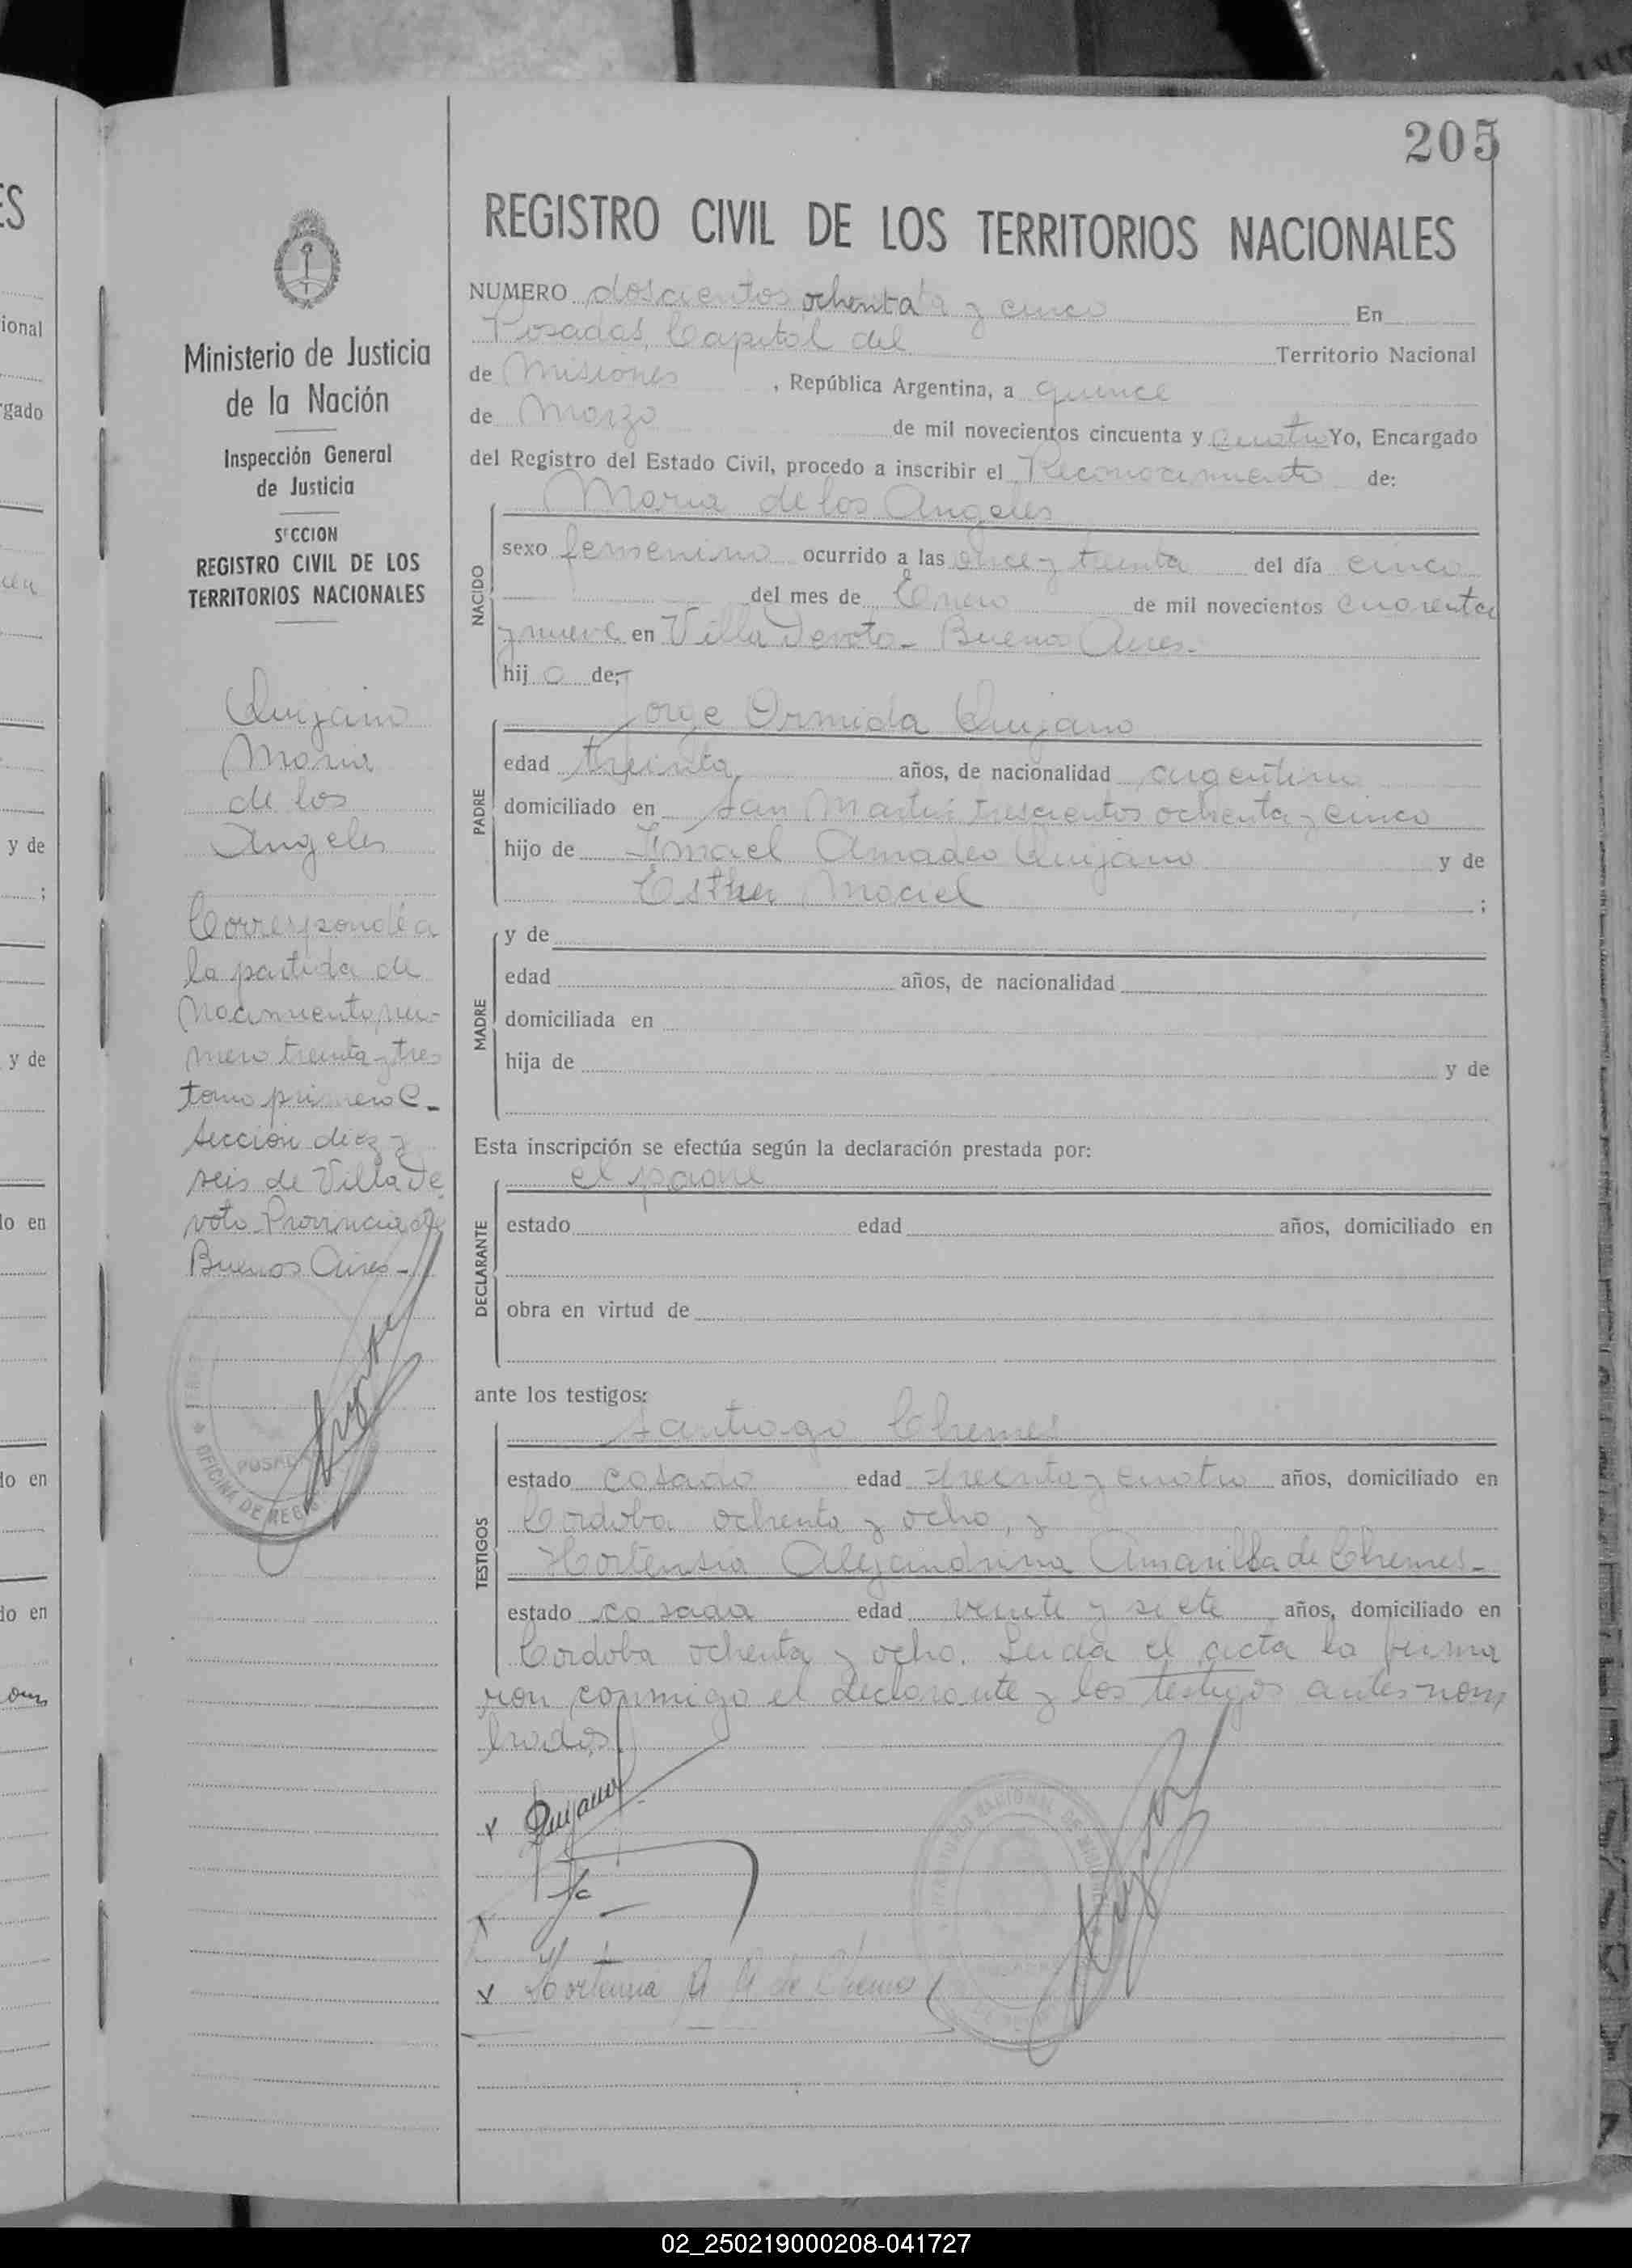 205
ES
ional
rgado
y de
;
y de
lo en
lo en
lo en
Ministerio de Justicia
de la Nación
Inspección General
de Justicia
SECCION
REGISTRO CIVIL DE LOS
TERRITORIOS NACIONALES
Quijano
Maria
de los
Angeles
Corresponde a
la partida de
Nacimiento nu-
mero treinta y tres
tomo primero C-
sección diez y
seis de Villa De
voto Provincia de
Buenos Aires-
OFICINA DE REG
POSAD
REGISTRO CIVIL DE LOS TERRITORIOS NACIONALES
NUMERO doscientos ochenta y cinco En
Posadas, Capital del Territorio Nacional
de Misiones, República Argentina, a quince
de Marzo de mil novecientos cincuenta y cuatro Yo, Encargado
del Registro del Estado Civil, procedo a inscribir el Reconocimiento de:
Maria de los Angeles
NACIDO
sexo femenino ocurrido a las once y treinta del día cinco
del mes de Enero de mil novecientos cuarenta
y nueve en Villa Devoto - Buenos Aires.-
hij a de:
Jorge Ormida Quijano
PADRE
edad treinta años, de nacionalidad argentino
domiciliado en San Martin trescientos ochenta y cinco
hijo de Ismael Amadeo Quijano y de
Esther Maciel ;
MADRE
y de
edad años, de nacionalidad
domiciliada en
hija de y de
Esta inscripción se efectúa según la declaración prestada por:
el padre
DECLARANTE
estado edad años, domiciliado en
obra en virtud de
ante los testigos:
Santiago Chemes
TESTIGOS
estado casado edad treinta y cuatro años, domiciliado en
Cordoba ochenta y ocho, y
Hortensia Alejandrina Amarilla de Chemes-
estado casada edad veinte y siete años, domiciliado en
Cordoba ochenta y ocho. Leida el acta la firma
ron conmigo el declarante y los testigos antes nom
brados
x Quijano
x Hortensia A A de Chemes
02_250219000208-041727